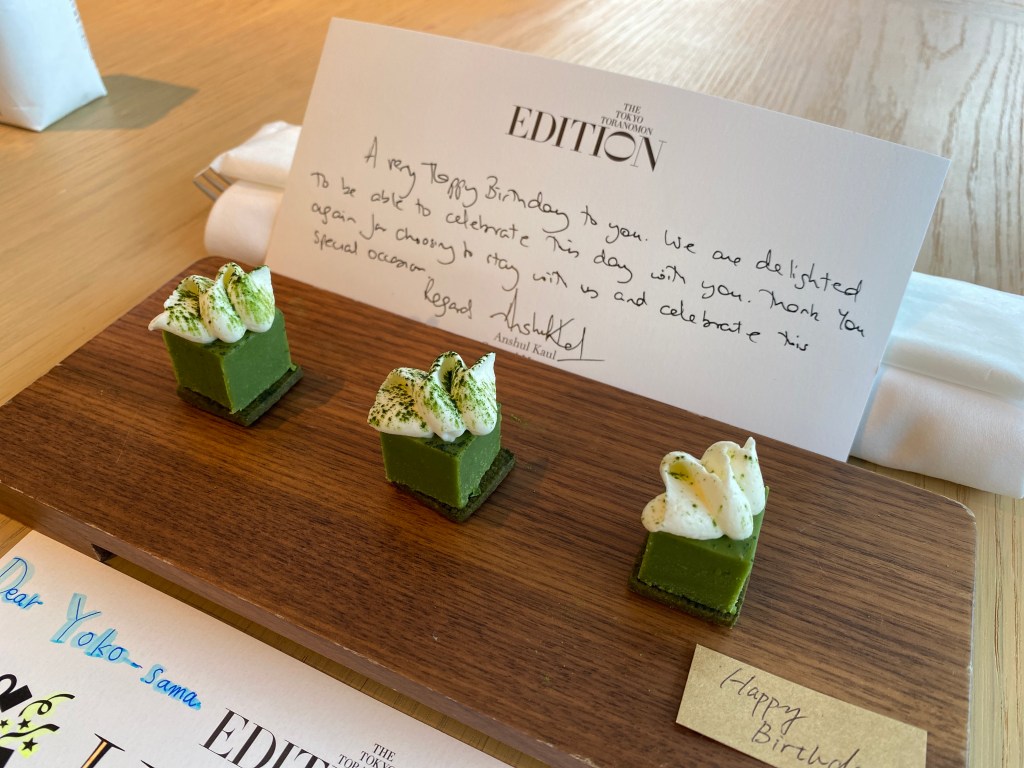 THE
TOKYO
TORANOMON
EDITION
A very Happy Birthday to you. We are delighted
To be able to celebrate This day with you. Thank You
again for choosing to stay with us and celebrate This
special occasion.
Regard
Anshul Kaul
Dear Yoko-sama
EDITI
THE
TOKYO
TORANOMON
Happy
Birthd